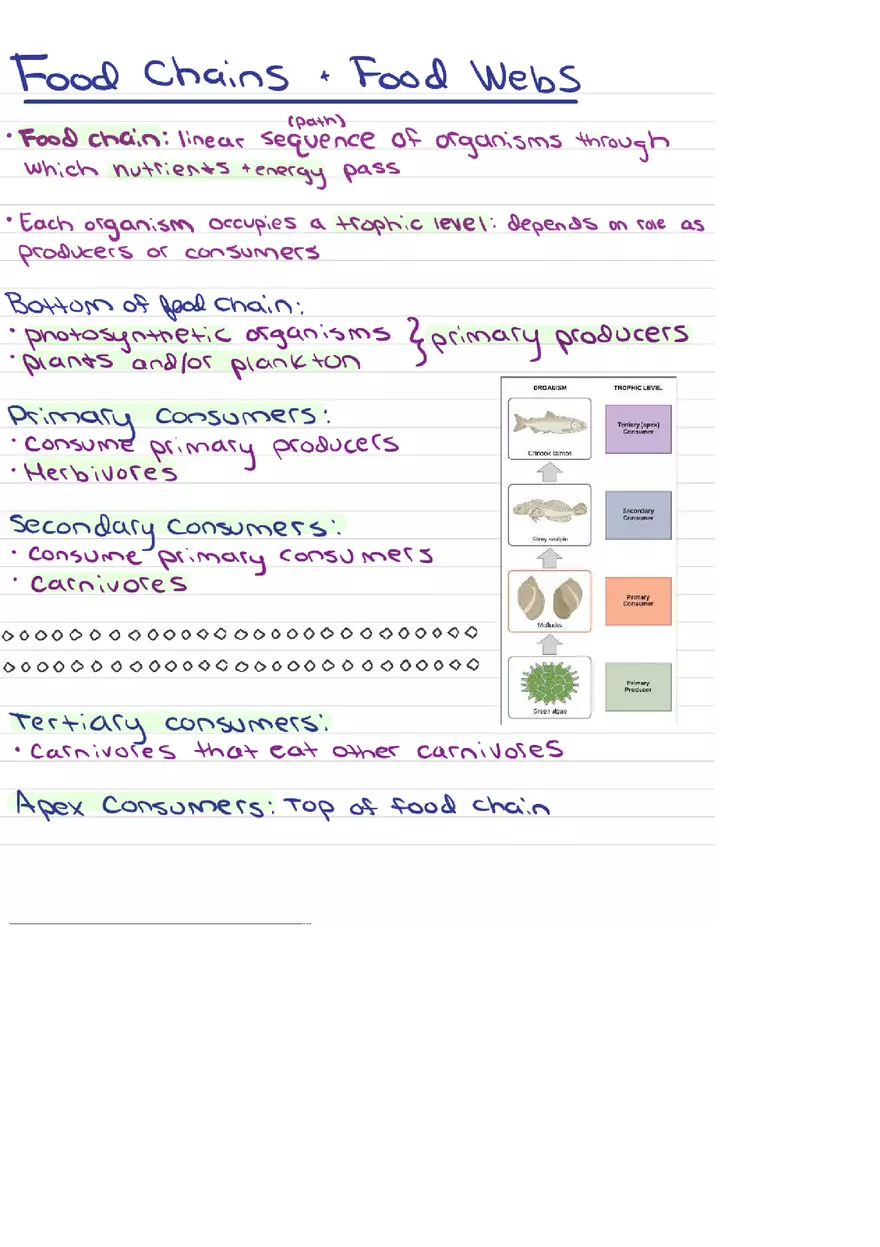 Food Chains + Food Webs
(path)
• Food chain: linear sequence of organisms through
which nutrients + energy pass
• Each organism occupies a trophic level: depends on role as
producers or consumers
Bottom of food chain:
• photosynthetic organisms } primary producers
• plants and/or plankton
ORGANISM TROPHIC LEVEL
Primary Consumers:
• Consume primary producers
• Herbivores
Tertiary (apex)
Consumer
Chinook salmon
Secondary Consumers:
• Consume primary consumers
• Carnivores
Secondary
Consumer
Slimy sculpin
Primary
Consumer
Mollusks
Primary
Producer
Green algae
Tertiary consumers:
• Carnivores that eat other carnivores
Apex Consumers: Top of food chain